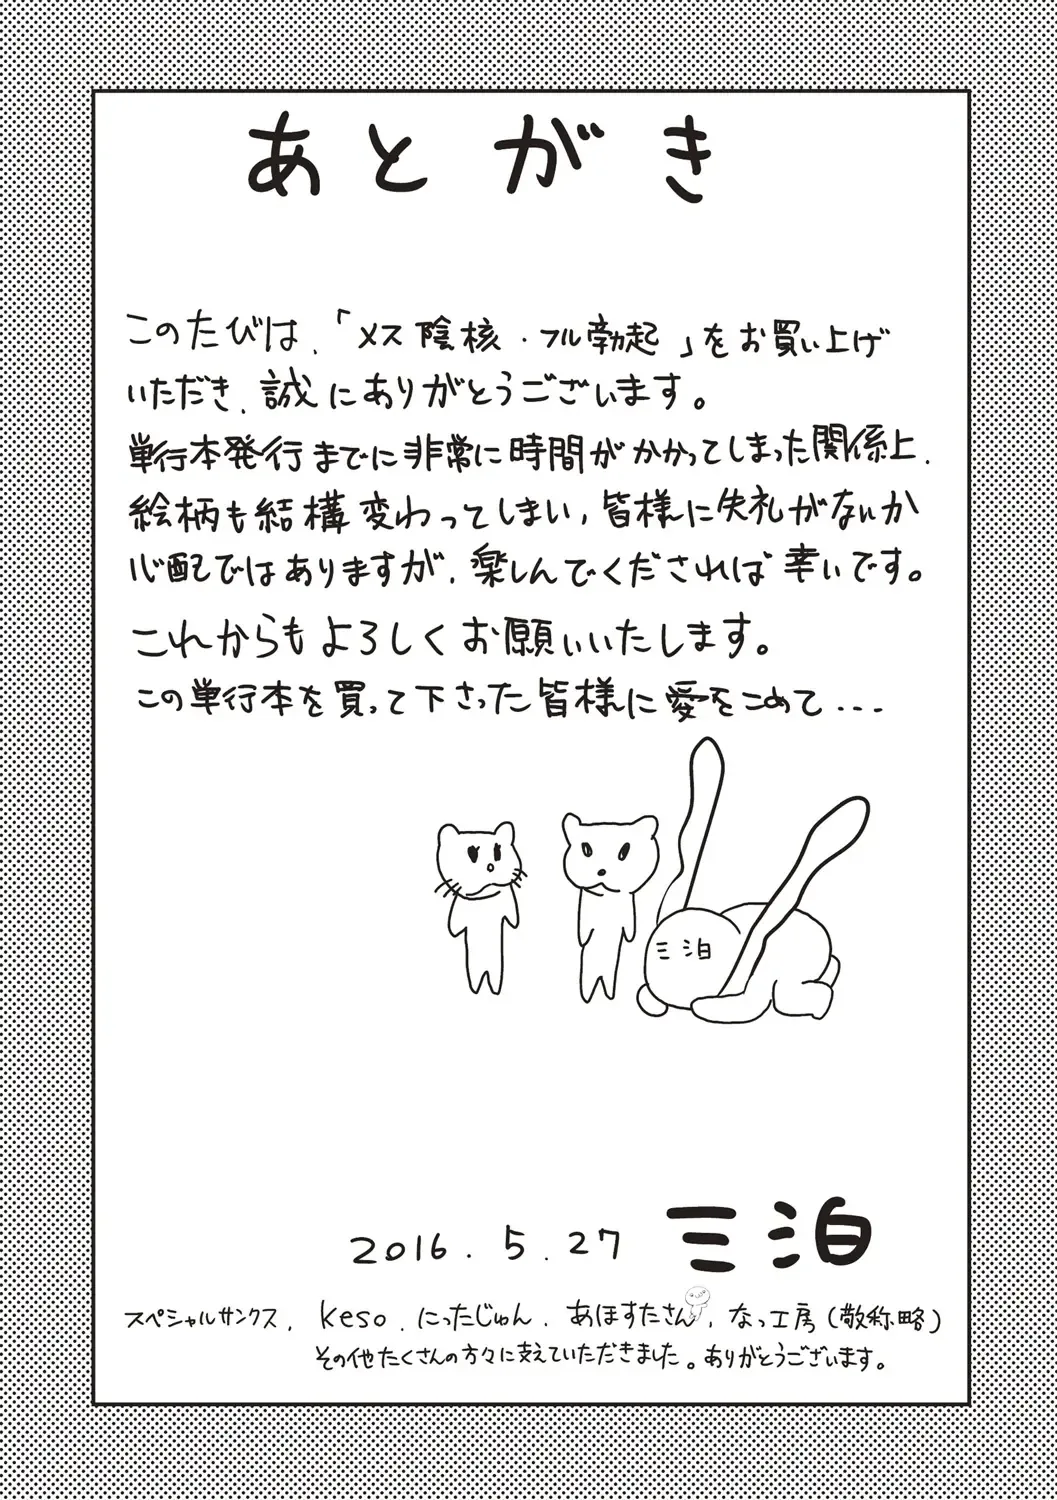 あとがき
このたびは、「メス陰核・フル勃起」をお買い上げ
いただき、誠にありがとうございます。
単行本発行までに非常に時間がかかってしまった関係上、
絵柄も結構変わってしまい、皆様に失礼がないか
心配ではありますが、楽しんでくだされば幸いです。
これからもよろしくお願いいたします。
この単行本を買って下さった皆様に愛をこめて...
三泊
2016.5.27 三泊
スペシャルサンクス、keso、にったじゅん、あほすたさん、なっ工房(敬称略)
その他たくさんの方々に支えていただきました。ありがとうございます。